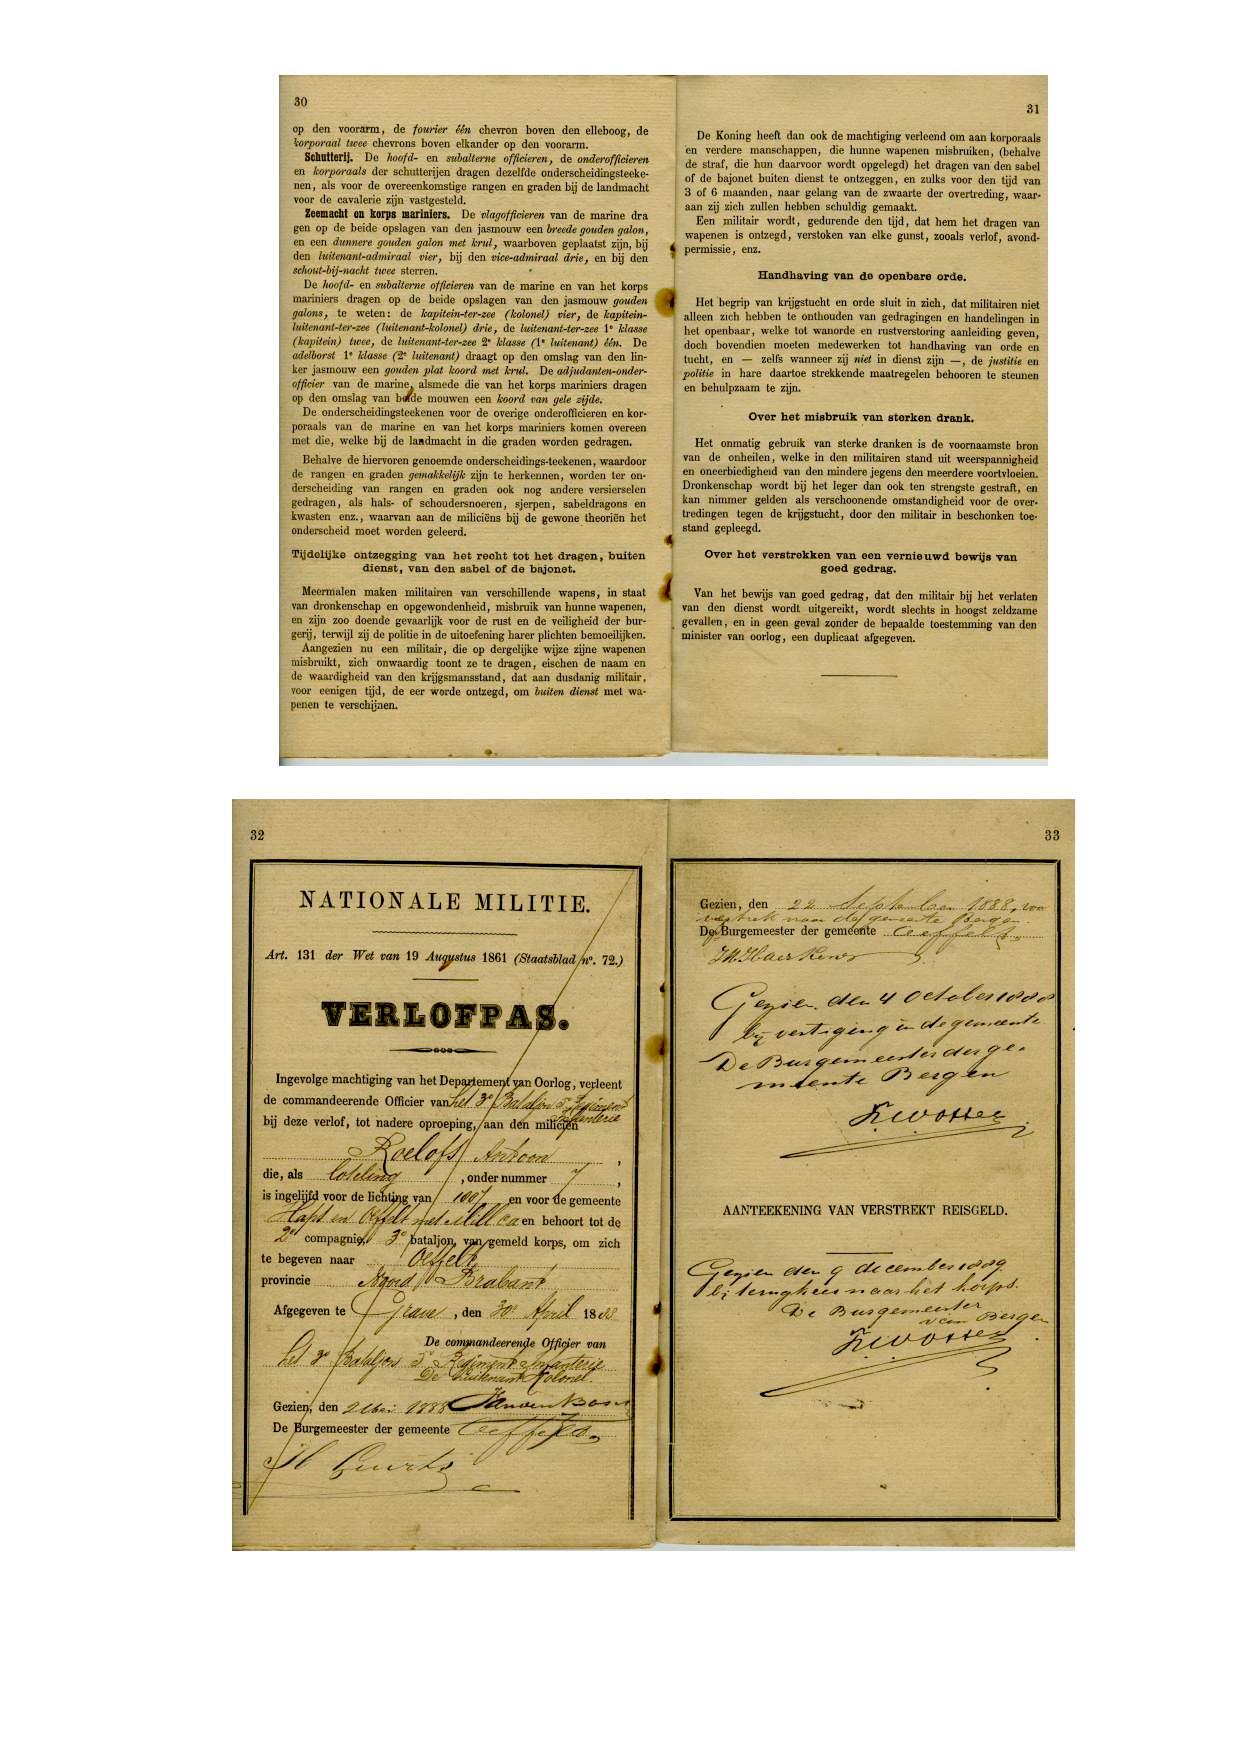 30
op den voorarm, de fourier één chevron boven den elleboog, de
korporaal twee chevrons boven elkander op den voorarm.
Schutterij. De hoofd- en subalterne officieren, de onderofficieren
en korporaals der schutterijen dragen dezelfde onderscheidingsteeke-
nen, als voor de overeenkomstige rangen en graden bij de landmacht
voor de cavalerie zijn vastgesteld.
Zeemacht en korps mariniers. De vlagofficieren van de marine dra
gen op de beide opslagen van den jasmouw een breede gouden galon,
en een dunnere gouden galon met krul, waarboven geplaatst zijn, bij
den luitenant-admiraal vier, bij den vice-admiraal drie, en bij den
schout-bij-nacht twee sterren.
De hoofd- en subalterne officieren van de marine en van het korps
mariniers dragen op de beide opslagen van den jasmouw gouden
galons, te weten: de kapitein-ter-zee (kolonel) vier, de kapitein-
luitenant-ter-zee (luitenant-kolonel) drie, de luitenant-ter-zee 1e klasse
(kapitein) twee, de luitenant-ter-zee 2e klasse (1e luitenant) één. De
adelborst 1e klasse (2e luitenant) draagt op den omslag van den lin-
ker jasmouw een gouden plat koord met krul. De adjudanten-onder-
officier van de marine, alsmede die van het korps mariniers dragen
op den omslag van beide mouwen een koord van gele zijde.
De onderscheidingsteekenen voor de overige onderofficieren en kor-
poraals van de marine en van het korps mariniers komen overeen
met die, welke bij de landmacht in die graden worden gedragen.
Behalve de hiervoren genoemde onderscheidings-teekenen, waardoor
de rangen en graden gemakkelijk zijn te herkennen, worden ter on-
derscheiding van rangen en graden ook nog andere versierselen
gedragen, als hals- of schoudersnoeren, sjerpen, sabeldragons en
kwasten enz., waarvan aan de miliciëns bij de gewone theoriën het
onderscheid moet worden geleerd.
Tijdelijke ontzegging van het recht tot het dragen, buiten
dienst, van den sabel of de bajonet.
Meermalen maken militairen van verschillende wapens, in staat
van dronkenschap en opgewondenheid, misbruik van hunne wapenen,
en zijn zoo doende gevaarlijk voor de rust en de veiligheid der bur-
gerij, terwijl zij de politie in de uitoefening harer plichten bemoeilijken.
Aangezien nu een militair, die op dergelijke wijze zijne wapenen
misbruikt, zich onwaardig toont ze te dragen, eischen de naam en
de waardigheid van den krijgsmansstand, dat aan dusdanig militair,
voor eenigen tijd, de eer worde ontzegd, om buiten dienst met wa-
penen te verschijnen.
31
De Koning heeft dan ook de machtiging verleend om aan korporaals
en verdere manschappen, die hunne wapenen misbruiken, (behalve
de straf, die hun daarvoor wordt opgelegd) het dragen van den sabel
of de bajonet buiten dienst te ontzeggen, en zulks voor den tijd van
3 of 6 maanden, naar gelang van de zwaarte der overtreding, waar-
aan zij zich zullen hebben schuldig gemaakt.
Een militair wordt, gedurende den tijd, dat hem het dragen van
wapenen is ontzegd, verstoken van elke gunst, zooals verlof, avond-
permissie, enz.
Handhaving van de openbare orde.
Het begrip van krijgstucht en orde sluit in zich, dat militairen niet
alleen zich hebben te onthouden van gedragingen en handelingen in
het openbaar, welke tot wanorde en rustverstoring aanleiding geven,
doch bovendien moeten medewerken tot handhaving van orde en
tucht, en — zelfs wanneer zij niet in dienst zijn —, de justitie en
politie in hare daartoe strekkende maatregelen behooren te steunen
en behulpzaam te zijn.
Over het misbruik van sterken drank.
Het onmatig gebruik van sterke dranken is de voornaamste bron
van de onheilen, welke in den militairen stand uit weerspannigheid
en oneerbiedigheid van den mindere jegens den meerdere voortvloeien.
Dronkenschap wordt bij het leger dan ook ten strengste gestraft, en
kan nimmer gelden als verschoonende omstandigheid voor de over-
tredingen tegen de krijgstucht, door den militair in beschonken toe-
stand gepleegd.
Over het verstrekken van een vernieuwd bewijs van
goed gedrag.
Van het bewijs van goed gedrag, dat den militair bij het verlaten
van den dienst wordt uitgereikt, wordt slechts in hoogst zeldzame
gevallen, en in geen geval zonder de bepaalde toestemming van den
minister van oorlog, een duplicaat afgegeven.
32
NATIONALE MILITIE.
Art. 131 der Wet van 19 Augustus 1861 (Staatsblad no. 72.)
VERLOFPAS.
Ingevolge machtiging van het Departement van Oorlog, verleent
de commandeerende Officier van het 3e Bataljon 5e Regiment
Infanterie
bij deze verlof, tot nadere oproeping, aan den milicien
Roelofs Antoon,
die, als loteling, onder nummer 7,
is ingelijfd voor de lichting van 1887 en voor de gemeente
Haps en Oeffelt met Mill ca en behoort tot de
2e compagnie, 3e bataljon, van gemeld korps, om zich
te begeven naar Oeffelt
provincie Noord Brabant
Afgegeven te Grave, den 30e April 1888
De commandeerende Officier van
het 3e Bataljon 5e Regiment Infanterie
De Luitenant Kolonel.
Gezien, den 2 Mei 1888
De Burgemeester der gemeente Oeffelt
33
Gezien, den 22 September 1888, voor
vertrek naar de gemeente Bergen.
De Burgemeester der gemeente Oeffelt.
Gezien den 4 October 1888
bij vestiging in de gemeente
De Burgemeester der ge-
meente Bergen
AANTEEKENING VAN VERSTREKT REISGELD.
Gezien den 9 december 1889
bij terugkeer naar het korps.
De Burgemeester
van Bergen